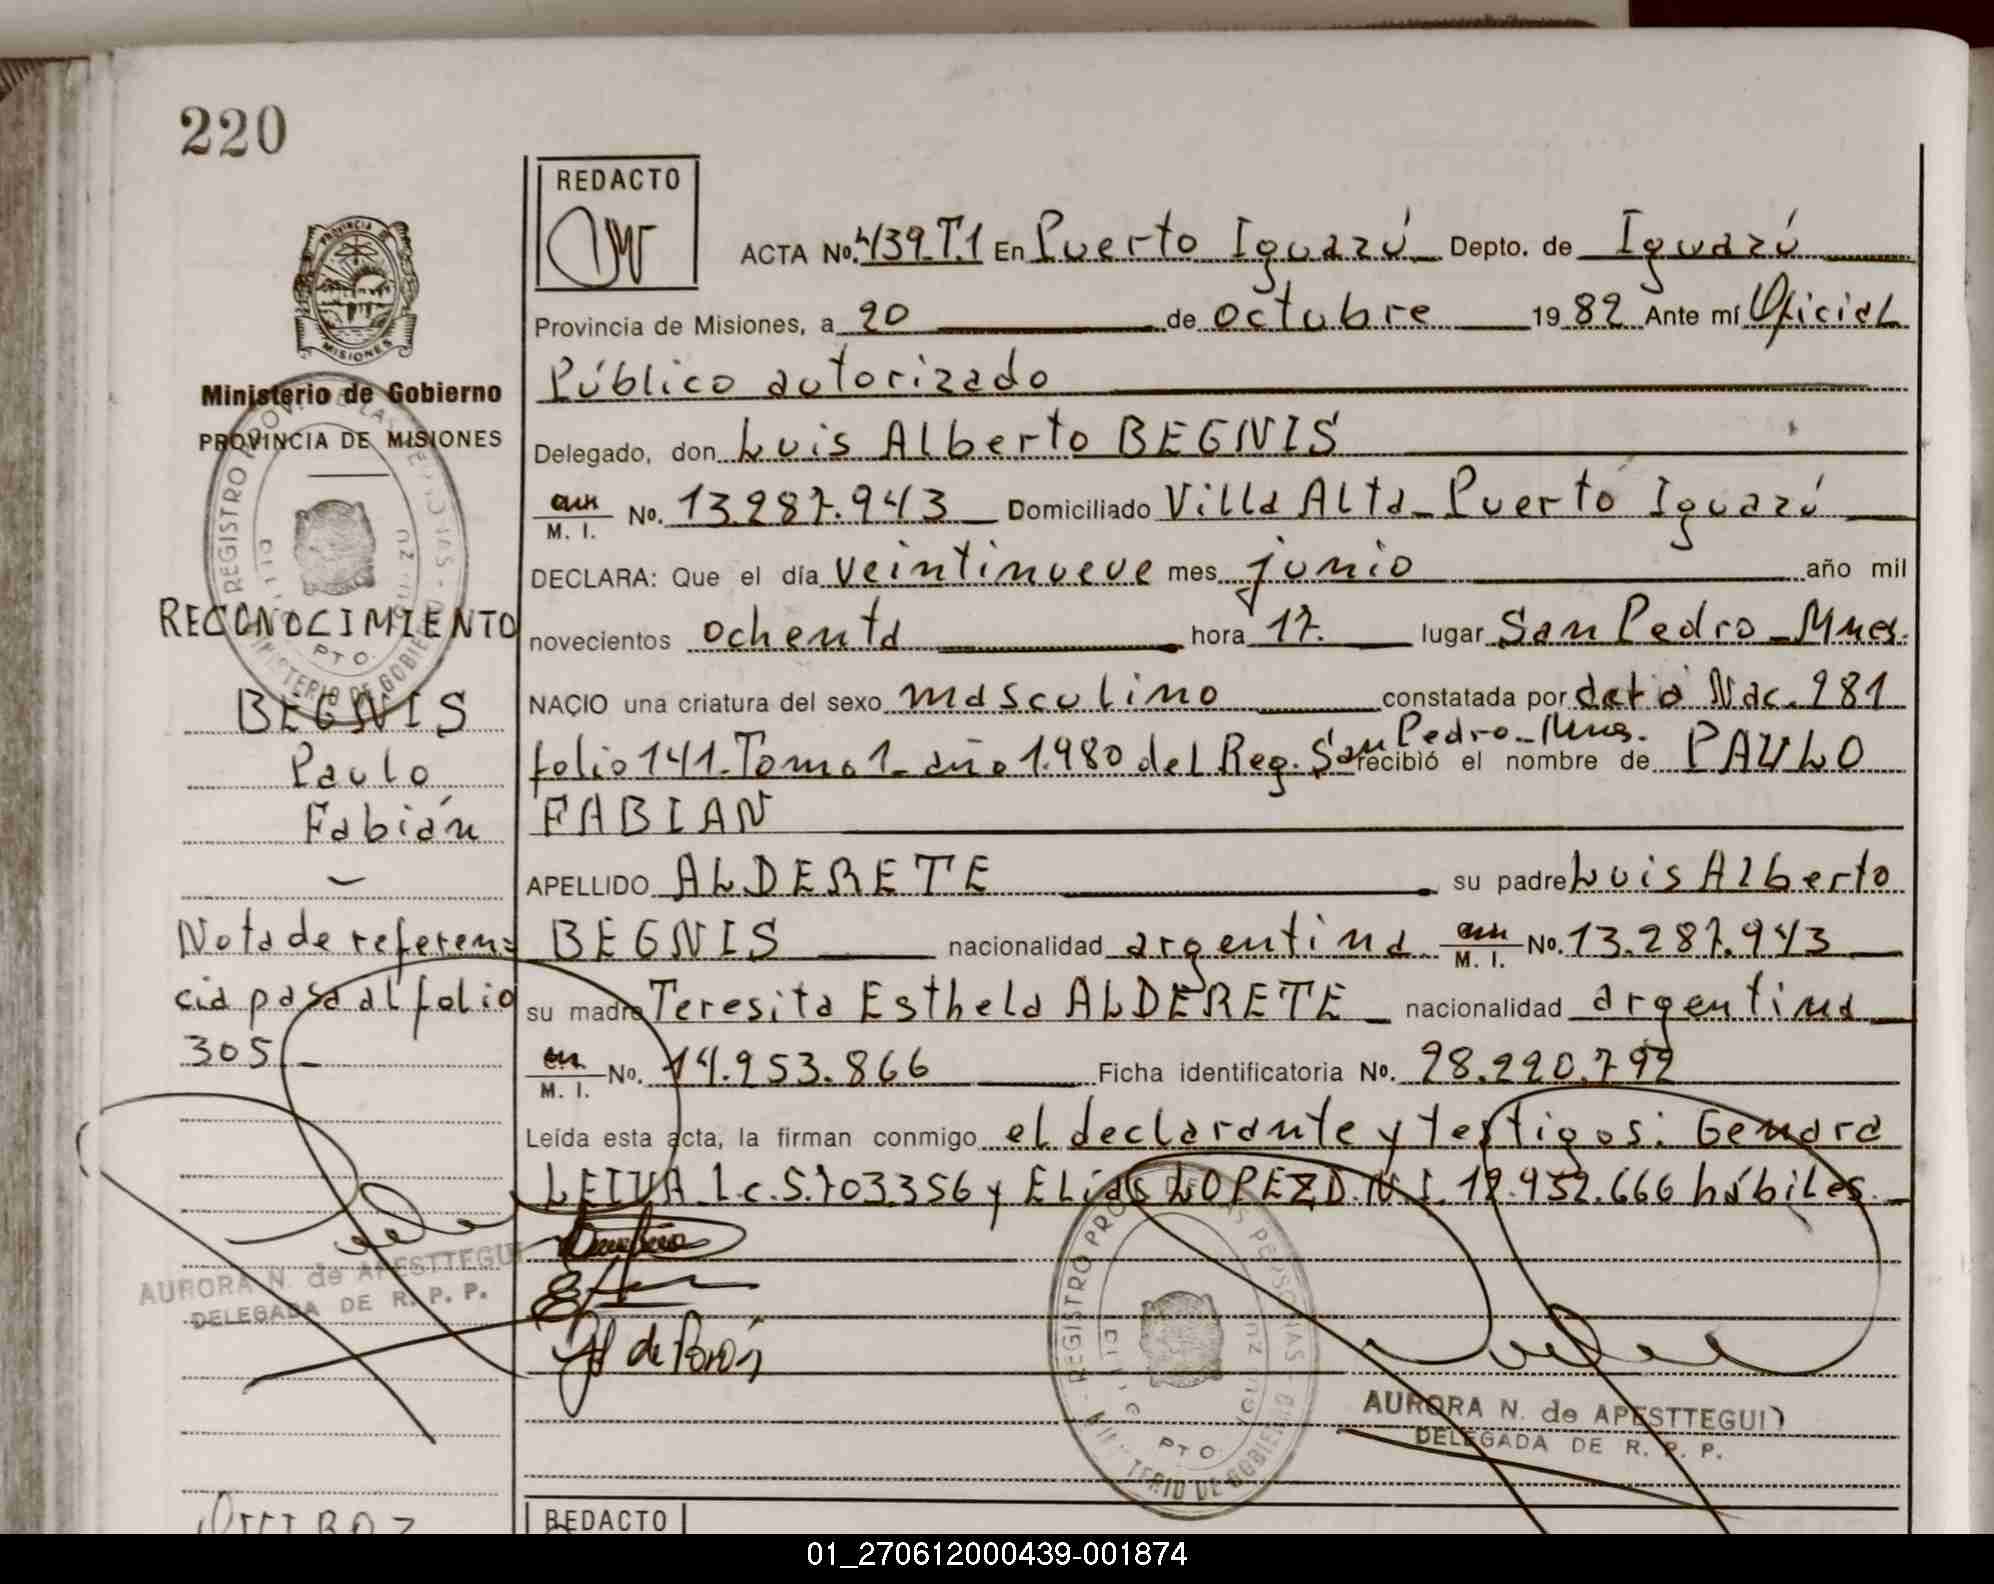 220
REDACTO
PROVINCIA DE
MISIONES
ACTA No. 439.T.1 En Puerto Iguazú Depto. de Iguazú
Provincia de Misiones, a 20 de octubre 1982 Ante mí Oficial
Público autorizado
Ministerio de Gobierno
PROVINCIA DE MISIONES
Delegado, don Luis Alberto BEGNIS
M. I. No. 13.287.943 Domiciliado Villa Alta - Puerto Iguazú
DECLARA: Que el día veintinueve mes junio año mil
novecientos ochenta hora 17. lugar San Pedro - Mnes.
RECONOCIMIENTO
NACIO una criatura del sexo masculino constatada por acta Nac. 281
folio 141. Tomo 1 - año 1.980 del Reg. San Pedro - Mnes. recibió el nombre de PAULO
FABIAN
BEGNIS
Paulo
Fabián
APELLIDO ALDERETE su padre Luis Alberto
BEGNIS nacionalidad argentina M. I. No. 13.287.943
su madre Teresita Esthela ALDERETE nacionalidad argentina
M. I. No. 14.953.866 Ficha identificatoria No. 28.220.792
Nota de referen=
cia pasa al folio
305
Leída esta acta, la firman conmigo el declarante y testigos: Genara
LEIVA L.C. 5.703.356 y Elías LOPEZ D.N.I. 12.952.666 hábiles.
REGISTRO PROV. DE LAS PERSONAS
MINISTERIO DE GOBIERNO
PTO.
AURORA N. de APESTTEGUI
DELEGADA DE R. P. P.
REGISTRO PROV. DE LAS PERSONAS
MINISTERIO DE GOBIERNO
PTO.
AURORA N. de APESTTEGUI
DELEGADA DE R. P. P.
REDACTO
01_270612000439-001874